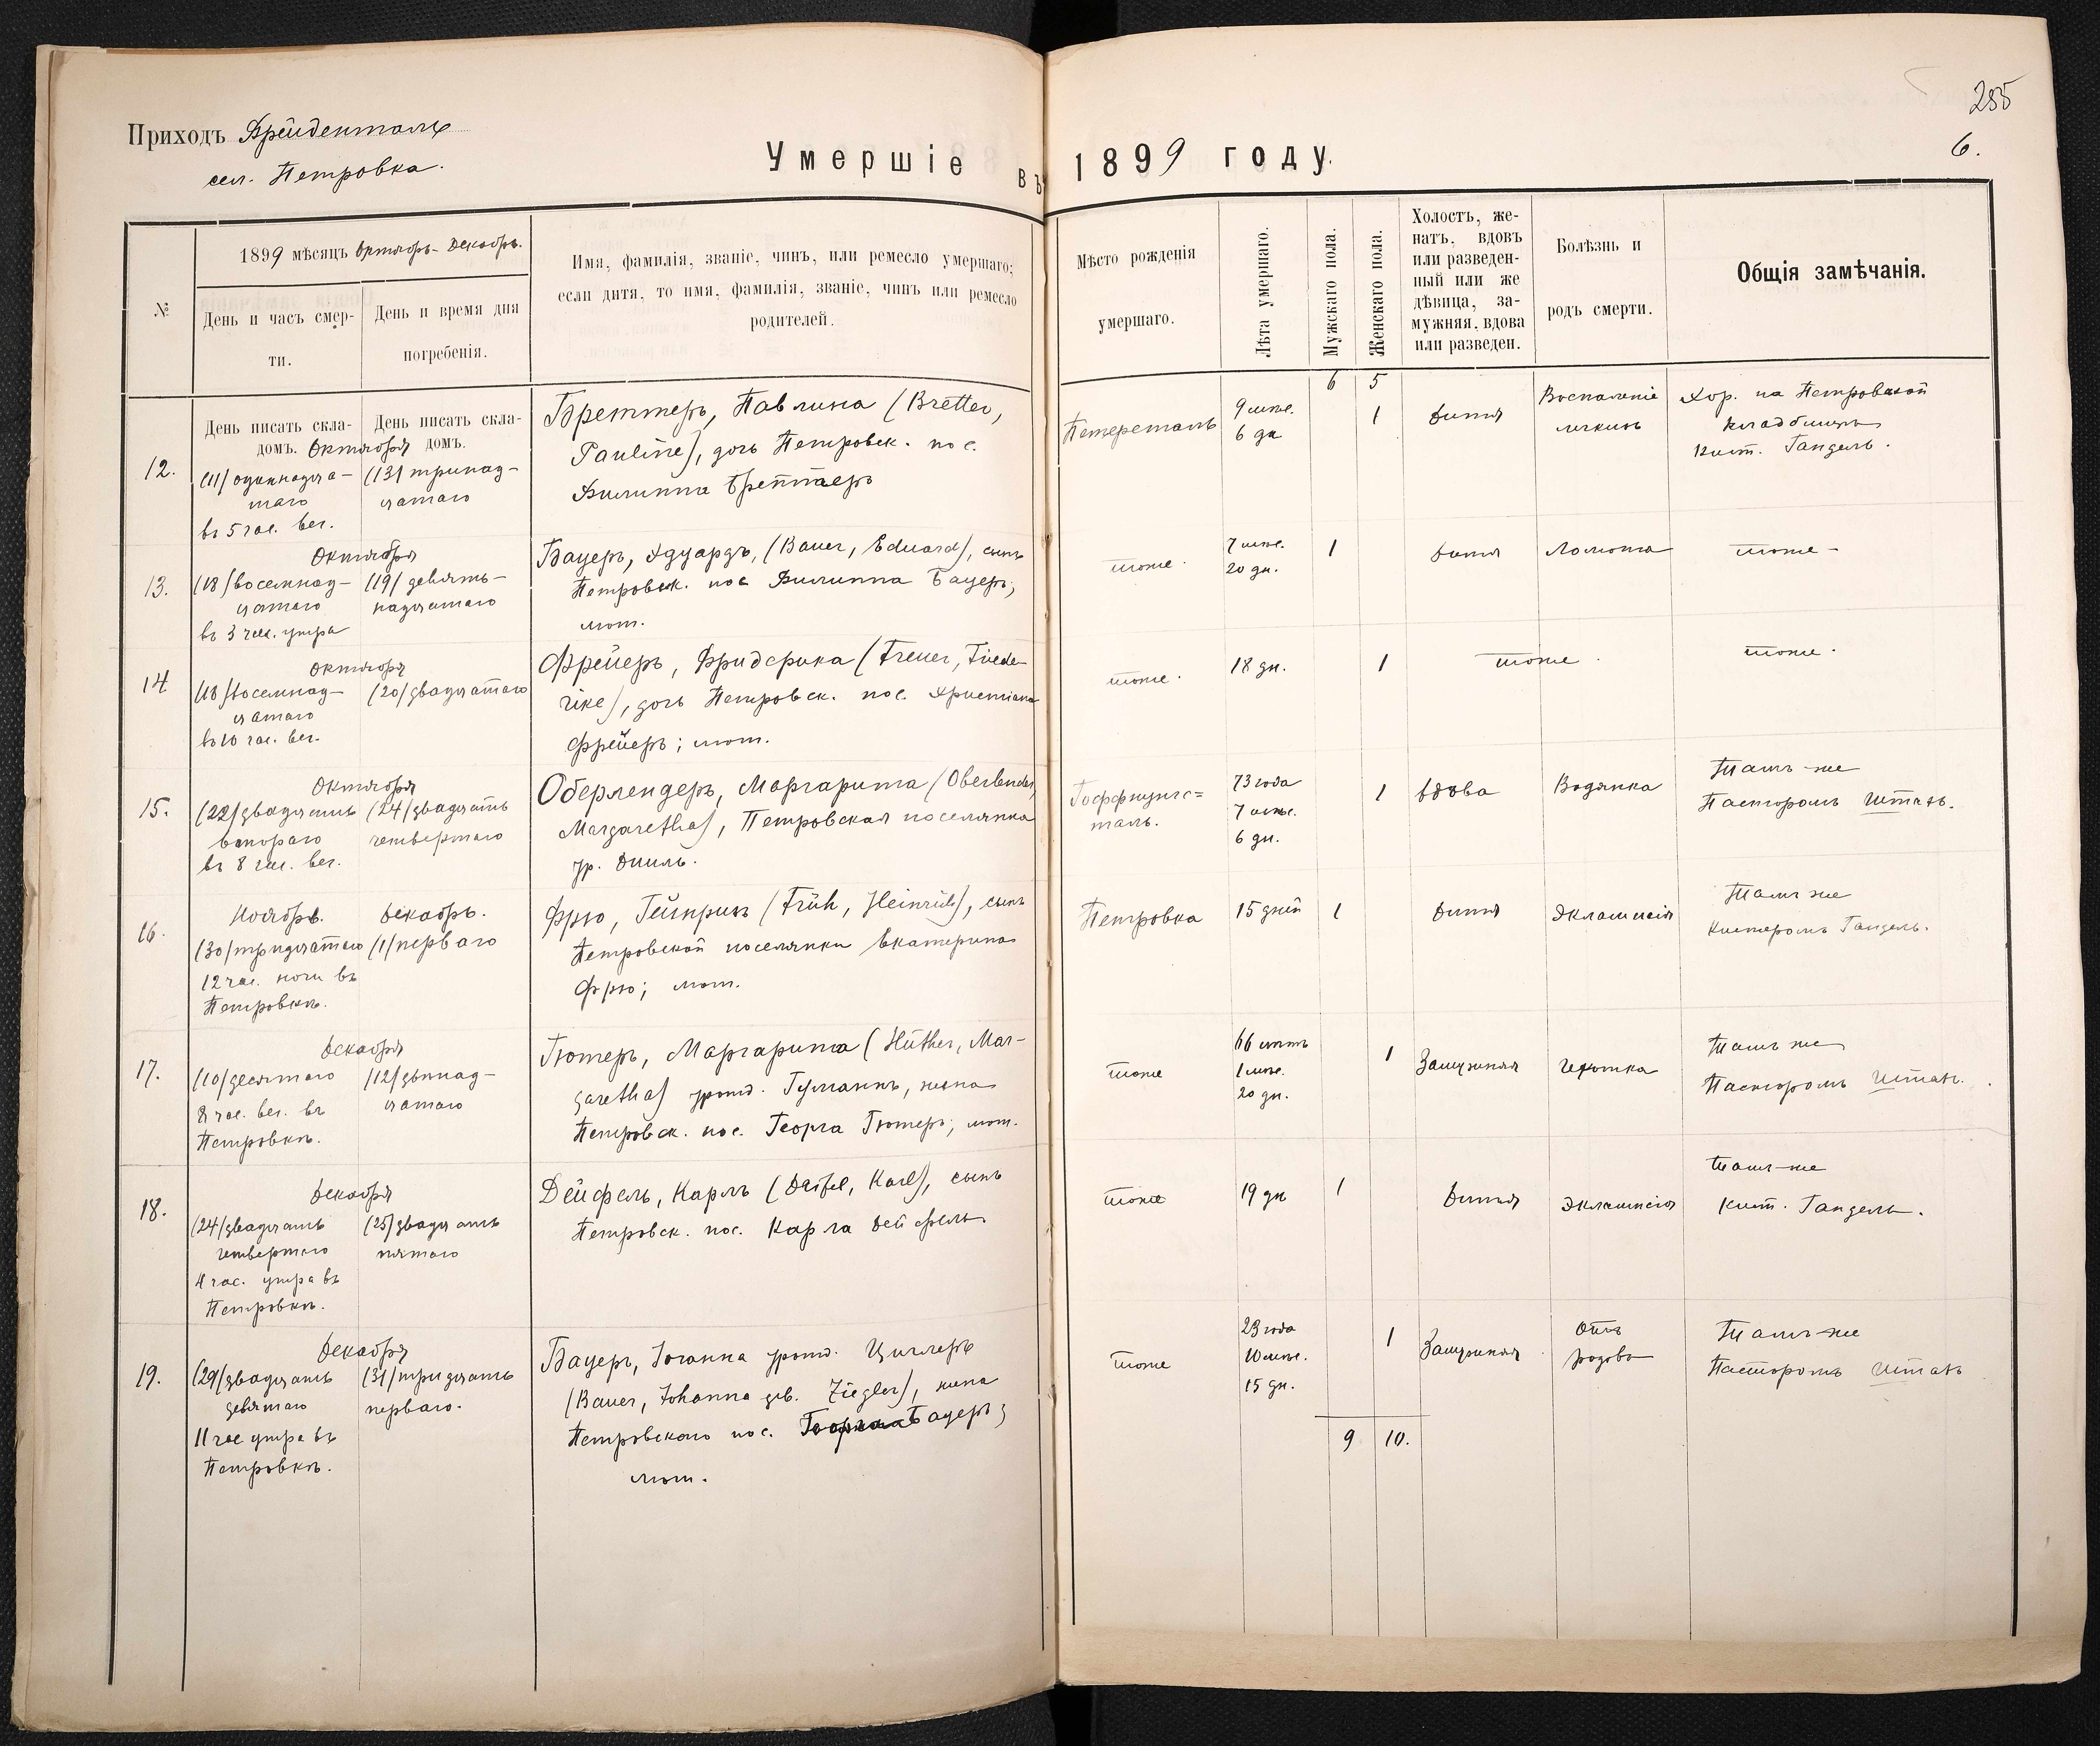 285
6.
Приходъ Фрейденталь
сел. Петровка.
Умершіе въ 1899 году.
№
1899 мѣсяцъ Октябрь - Декабрь.
День и часъ смер-
ти.
День и время дня
погребенія.
Имя, фамилія, званіе, чинъ, или ремесло умершаго;
если дитя, то имя, фамилія, званіе, чинъ или ремесло
родителей.
Мѣсто рожденія
умершаго.
Лѣта умершаго.
Мужскаго пола.
Женскаго пола.
Холостъ, же-
натъ, вдовъ
или разведен-
ный или же
дѣвица, за-
мужняя, вдова
или разведен.
Болѣзнь и
родъ смерти.
Общія замѣчанія.
6 5
День писать скла-
домъ.
День писать скла-
домъ.
12.
Октября
(11) одиннадца-
таго
въ 5 час. веч.
(13) тринад-
цатаго
Бреттеръ, Павлина (Bretter,
Pauline), дочь Петровск. пос.
Филиппа Бреттеръ
Петерсталь
9 мѣс.
6 дн
1
Дитя
Воспаленіе
легкихъ
Хор. на Петровской
кладбищѣ
Кист. Гандель.
13.
Октября
(18) восемнад-
цатаго
въ 3 час. утра
(19) девять-
надцатаго
Бауеръ, Эдуардъ, (Bauer, Eduard), сынъ
Петровск. пос Филиппа Бауеръ;
лют.
тоже.
7 мѣс.
20 дн.
1
Дитя
Ломота
тоже -
14
Октября
(18) восемнад-
цатаго
въ 10 час. веч.
(20) двадцатаго
Фрейеръ, Фридерика (Freuer, Friede-
rike), дочь Петровск. пос. Христіана
Фрейеръ; лют.
тоже.
18 дн.
1
тоже.
тоже.
15.
Октября
(22) двадцать
втораго
въ 8 час. веч.
(24) двадцать
четвертаго
Оберлендеръ, Маргарита (Oberlender,
Margaretha), Петровская поселянка
ур. Дииль.
Гоффнунгс=
таль.
73 года
7 мѣс.
6 дн.
1
Вдова
Водянка
Тамъ-же
Пасторомъ Штахъ.
16.
Ноябрь.
(30) тридцатаго
12 час. ночи въ
Петровкѣ.
Декабрь.
(1) перваго
Фрю, Гейнрихъ (Früh, Heinrich), сынъ
Петровской поселянки Екатерина
Фрю; лют.
Петровка
15 дней
1
Дитя
Эклампсія
Тамъ же
Кистеромъ Гандель.
17.
Декабря
(10) десятаго
8 час. веч. въ
Петровкѣ.
(12) двѣнад-
цатаго
Гютеръ, Маргарита (Hüther, Mar-
garetha) урожд. Гуманнъ, жена
Петровск. пос. Георга Гютеръ; лют.
тоже
66 лѣтъ
1 мѣс.
20 дн.
1
Замужняя
Чахотка
Тамъ же
Пасторомъ Штахъ.
18.
Декабря
(24) двадцать
четвертаго
4 час. утра въ
Петровкѣ.
(25) двадцать
пятаго
Дейфель, Карлъ (Deifel, Karl), сынъ
Петровск. пос. Карла Дейфель
тоже
19 дн
1
Дитя
Эклампсія
Тамъ-же
Кист. Гандель.
19.
Декабря
(29) двадцать
девятаго
11 час утра въ
Петровкѣ.
(31) тридцать
перваго.
Бауеръ, Іоганна урожд. Циглеръ
(Bauer, Johanna geb. Ziegler), жена
Петровскаго пос. Бауеръ;
лют.
тоже
23 года
10 мѣс.
15 дн.
1
Замужняя
Отъ
родовъ
Тамъ-же
Пасторомъ Штахъ
9 10.